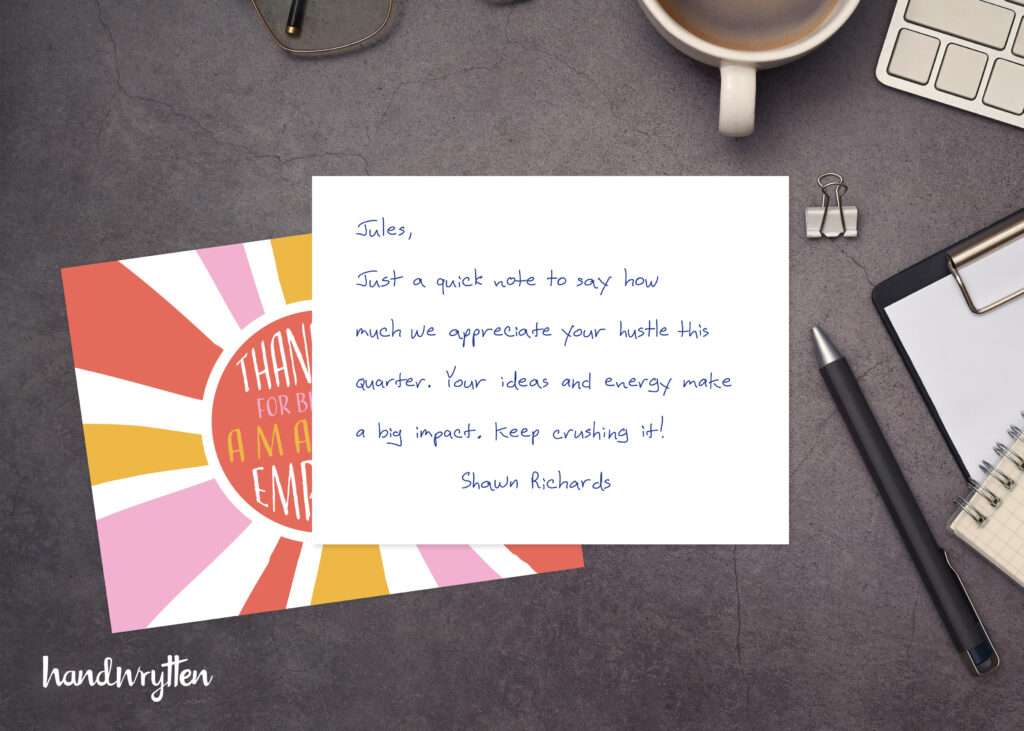 Jules,
Just a quick note to say how
much we appreciate your hustle this
quarter. Your ideas and energy make
a big impact. Keep crushing it!
Shawn Richards
THAN
FOR B
AMA
EM
handwrytten